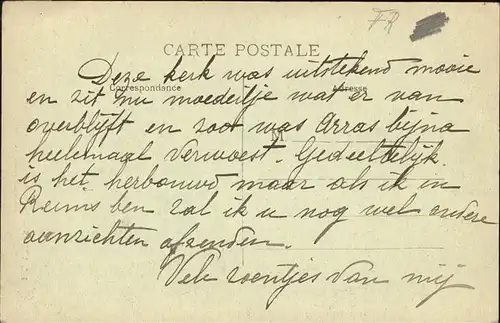 FR
CARTE POSTALE
Correspondance
Adresse
M
Deze kerk was uitstekend mooie
en zit nu moedertje wat er van
overblijft en zoo was Arras bijna
heelemaal verwoest. Gedeeltelijk
is het herbouwd maar als ik in
Reims ben zal ik u nog wel andere
aanzichten afzenden.
Vele zoentjes van mij